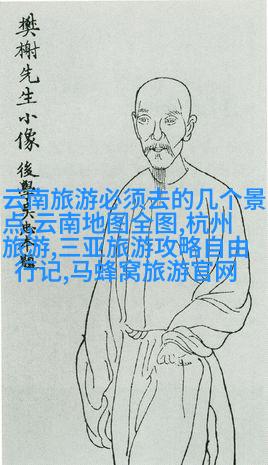 樊榭先生小像
後學吳題
云南旅游必须去的几个景
点,云南地图全图,杭州
旅游,三亚旅游攻略自由
行记,马蜂窝旅游官网